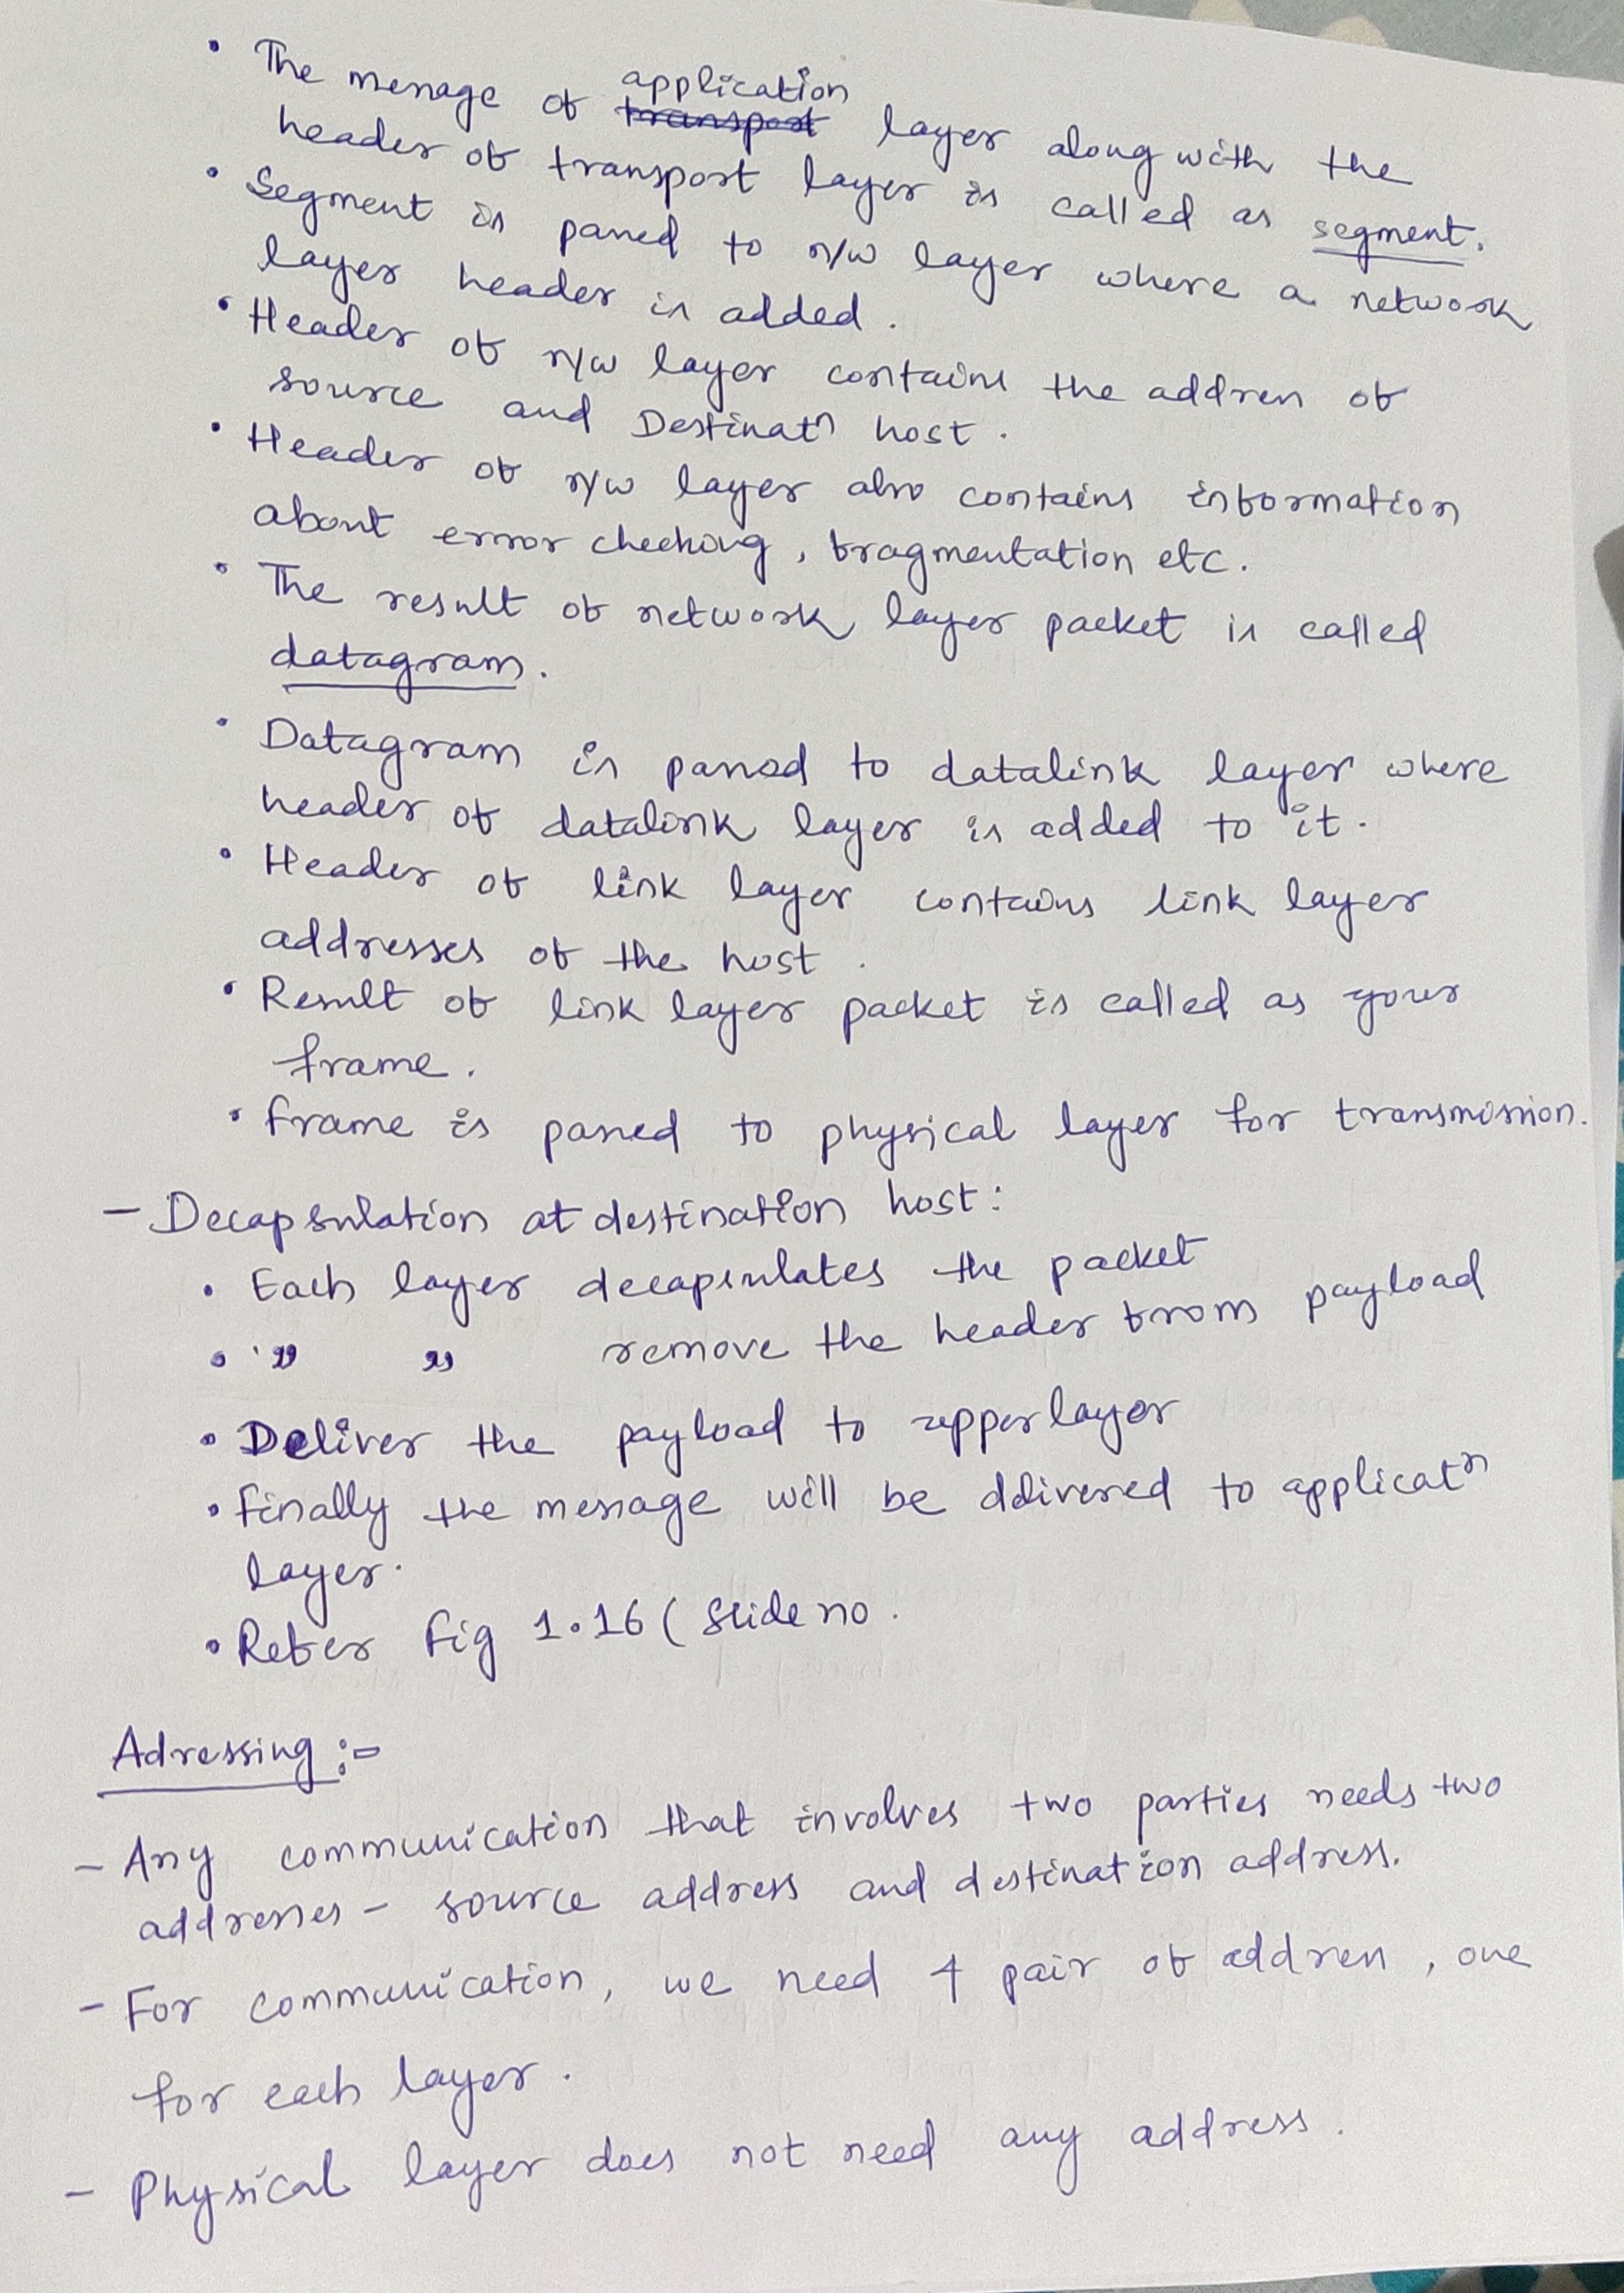 • The message of application transport layer along with the
header of transport layer is called as segment.
• Segment is passed to n/w layer where a network
layer header is added.
• Header of n/w layer contains the address of
source and Destinatn host.
• Header of n/w layer also contains information
about error checking, fragmentation etc.
• The result of network layer packet is called
datagram.
• Datagram is passed to datalink layer where
header of datalink layer is added to it.
• Header of link layer contains link layer
addresses of the host.
• Result of link layer packet is called as your
frame.
• Frame is passed to physical layer for transmission.
- Decapsulation at destination host:
• Each layer decapsulates the packet
• " " remove the header from payload
• Deliver the payload to upper layer
• Finally the message will be delivered to applicatn
layer.
• Refer Fig 1.16 ( Slide no.
Adressing :-
- Any communication that involves two parties needs two
addresses - source address and destination address.
- For communication, we need 4 pair of address, one
for each layer.
- Physical layer does not need any address.